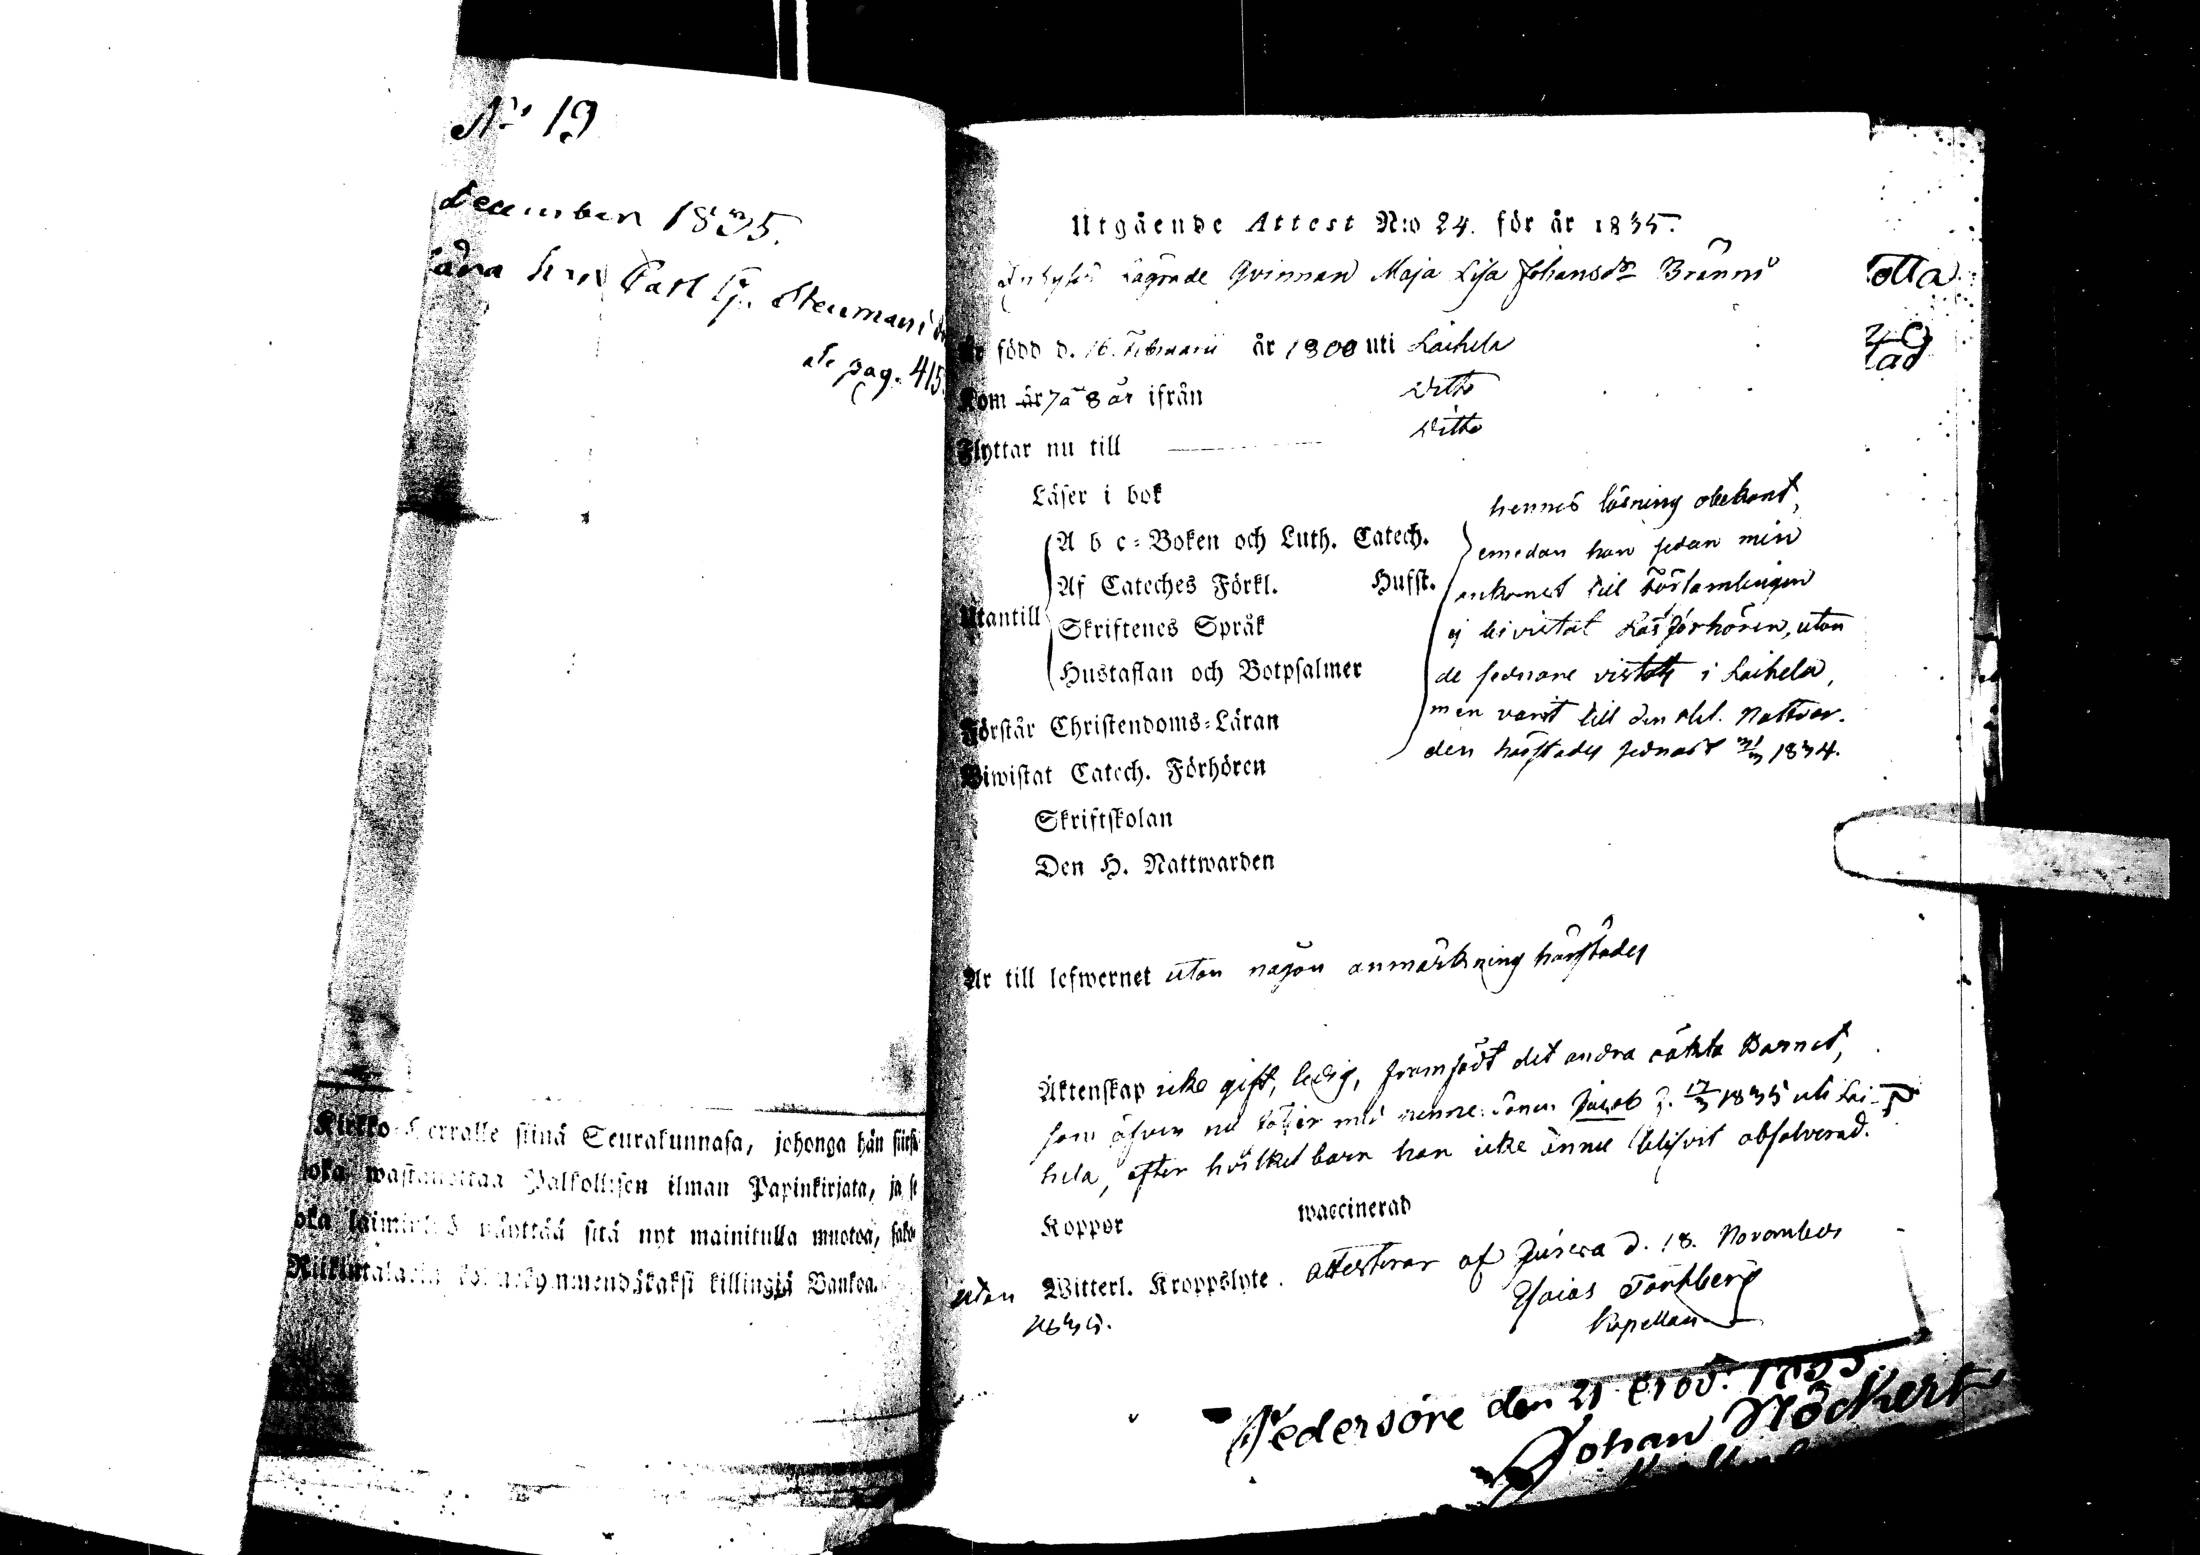 No 19
december 1835.
Carl G. Steuman
pag. 415.
Kirkko-Herralle siinä Seurakunnasa, johonga hän
joka wastanottaa Palkollisen ilman Papinkirjata, ja
näyttää sitä nyt mainitulla muotoa,
killingiä Bankoa.
Utgående Attest N:o 24. för år 1835.
Inhyses lägrade Qvinnan Maja Lisa Johansdr Bränn
otta
Är född d. 16. Februarii år 1800 uti Laihela
Kom år 7 à 8 år ifrån Ditto
Flyttar nu till Ditto
Läser i bok
A b c-Boken och Luth. Catech.
Af Cateches Förkl. Husst.
Utantill
Skriftenes Språk
Hustaflan och Botpsalmer
Förstår Christendoms-Läran
Biwistat Catech. Förhören
Skriftskolan
Den H. Nattwarden
hennes läsning obekant,
emedan hon sedan min
ankomst till Församlingen
ej bivistat Läsförhören, utan
de sednare vistats i Laihela,
men varit till den Hel. Nattvar-
den härstädes sednast 1834.
Är till lefwernet utan någon anmärkning härstädes
Äktenskap icke gift, ledig, framfödt det andra oäkta Barnet,
som äfven nu följer med henne: Sonen Jacob f. 17/3 1835 uti Lai-
hela, efter hvilket barn hon icke ännu blifvit absolverad.
Koppor waccinerad
utan Witterl. Kroppslyte. attesterar af Purmo d. 18. November
1835.
Esaias
Kapellan
Pedersöre den 21 Nov: 1835
Johan Höckert